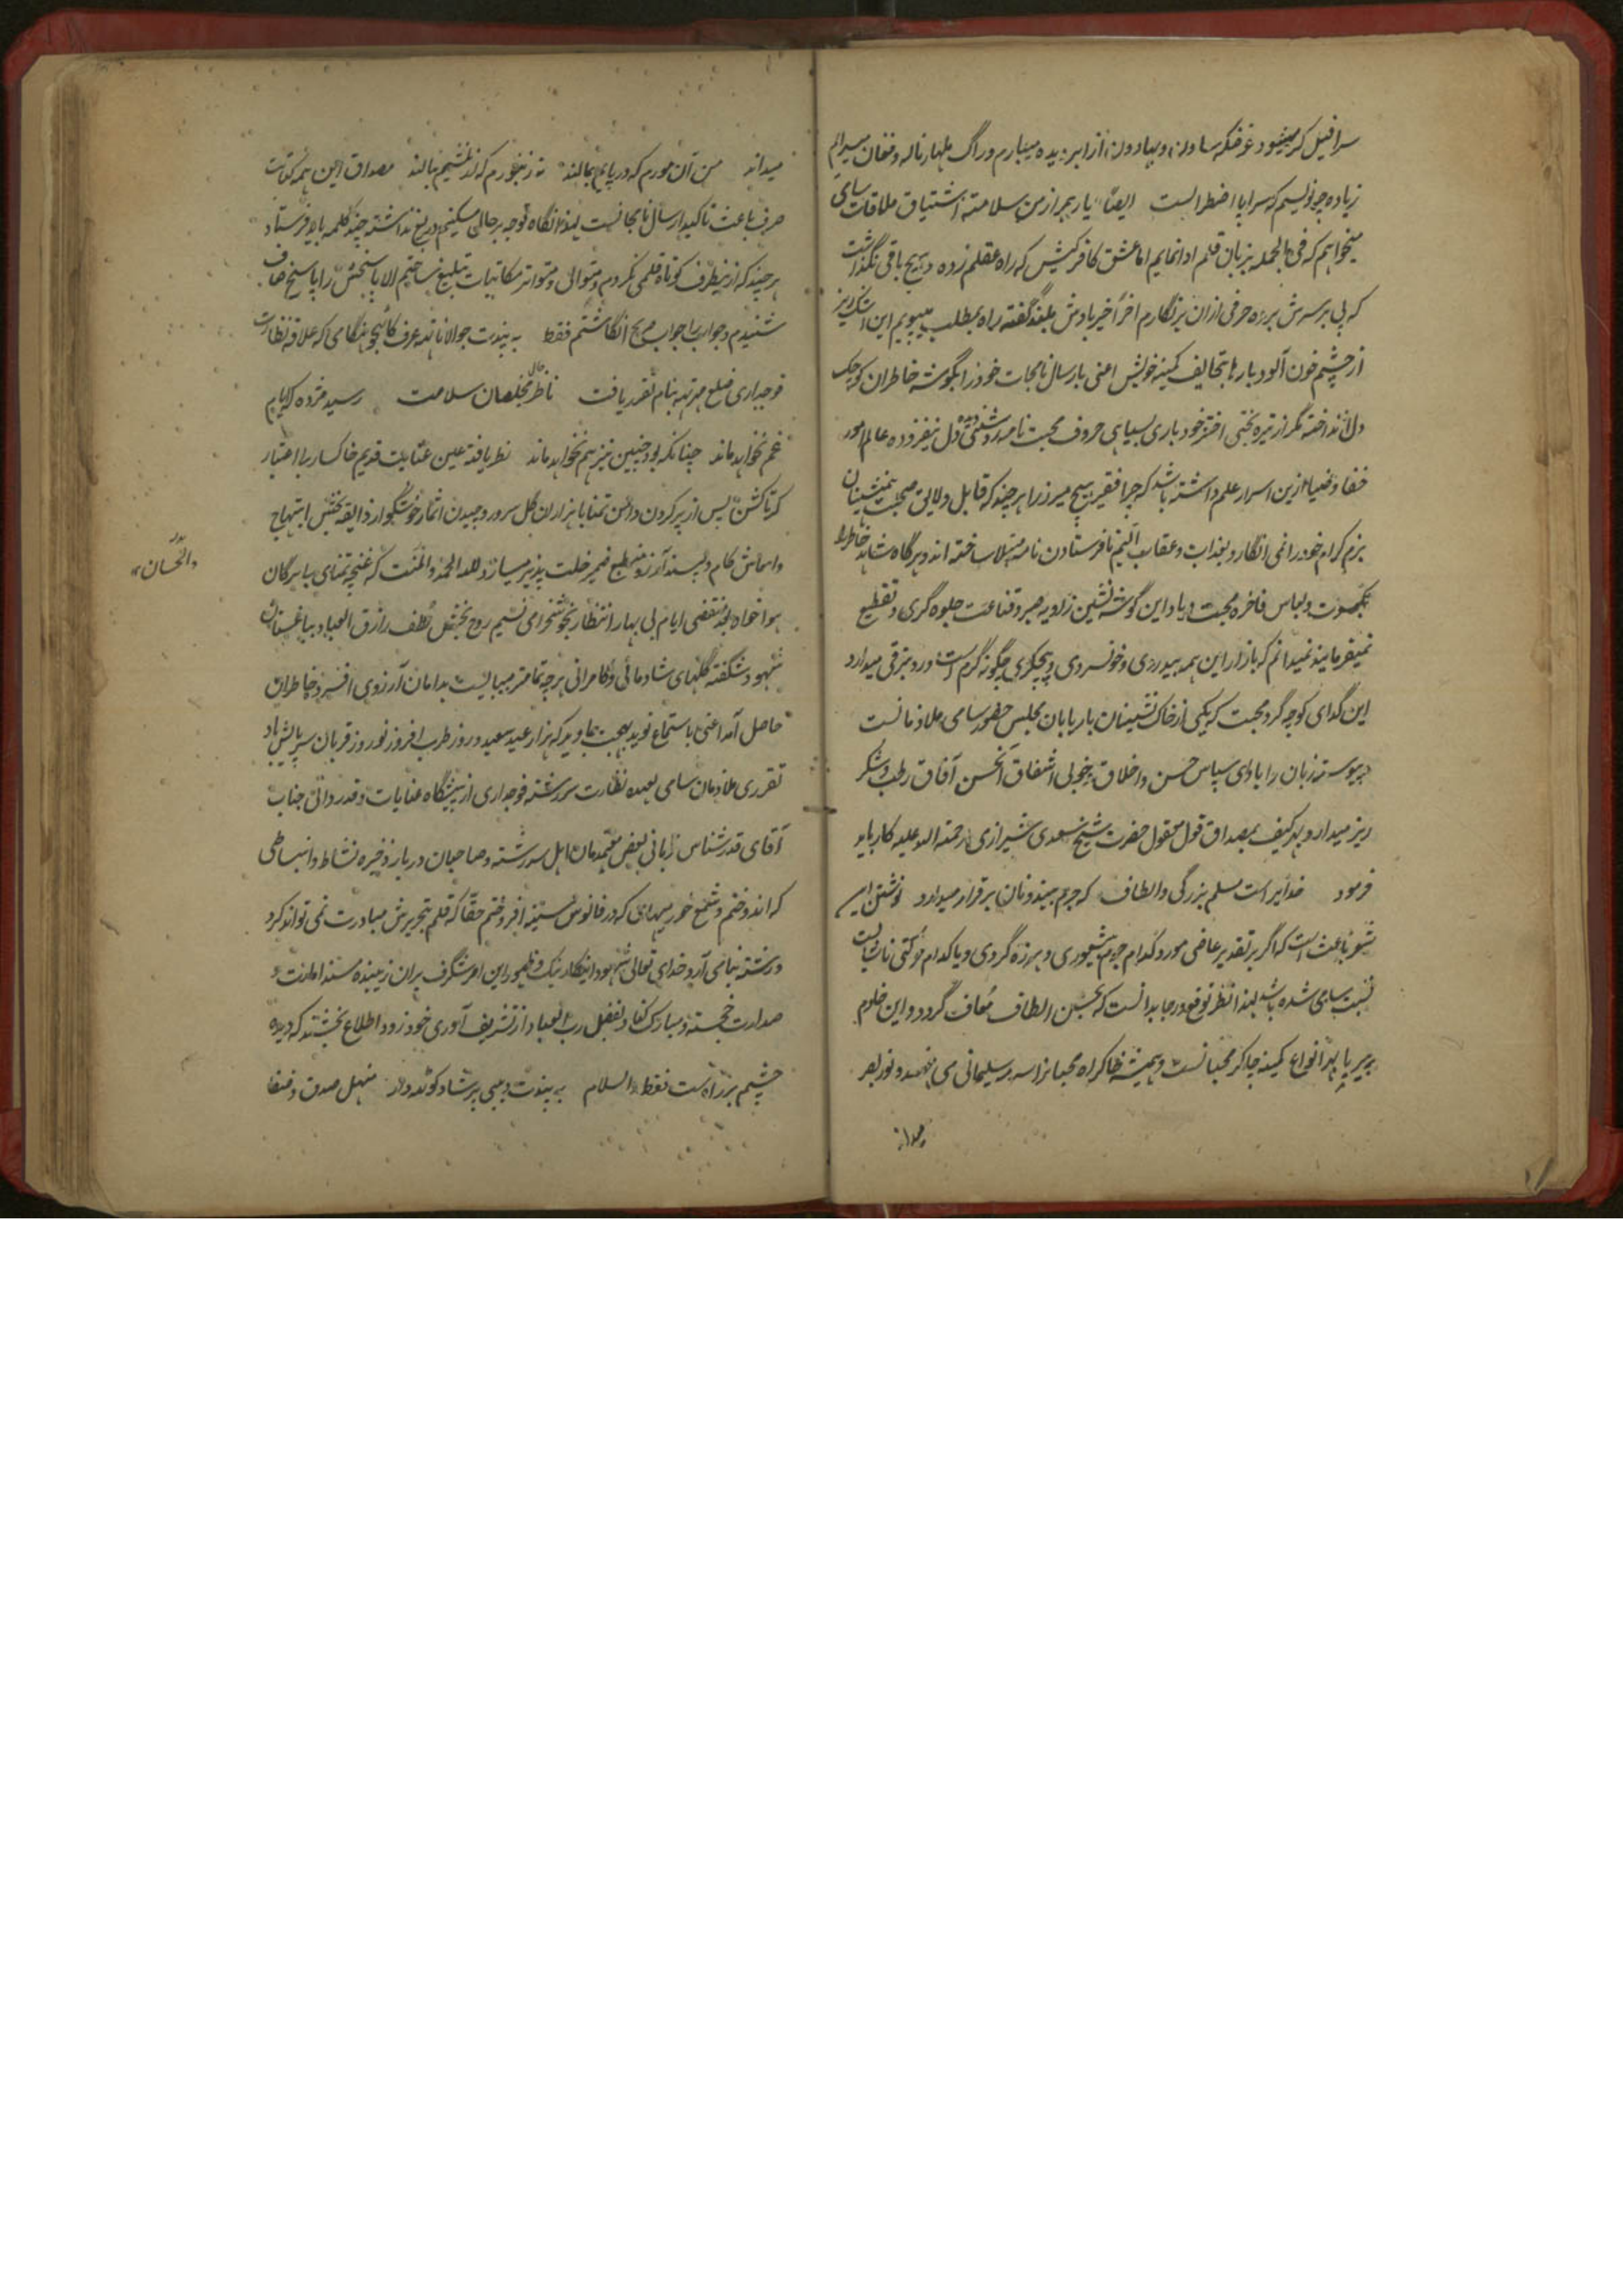 سرافیل کر میشود غرضکه ساون و بهادون از ابر دیده میبارم و راگ ملهار ناله و فغان میسرایم
زیاده چه نویسم که سراپا اضطرابست ایضاً یار بهتر از من سلامت اشتیاق ملاقات سامی
میخواهم که فی الجمله بزبان قلم ادا نمایم اما عشق کافرکیش که راه عقلم زده و هیچ باقی نگذاشت
که پی بر سرش برده حرفی ازان برنگارم آخر خیرباد من بلغ گفته راه مطلب میپویم این اشک ریز
از چشم خون آلود بارها بتحالیف کمینه خویش اعنی بارسال نامجات خود را بگوشه خاطران کوچک
دل انداخته مگر از تیره بختی اختر خود باری بسیاهی حروف محبت نامه روشنی دیده دل نیفزوده عالم امور
خفا و ضیا ازین اسرار علم داشته باشد که چرا فقیر هیچ میرز را هرچند که قابل و لایق صحبت همنشینان
بزم کرام خود را نمی انگارد بعذاب و عقاب الیم نافرستادن نامه مبتلا ساخته اند و هرگاه شاهد خاطر را
بکسوت و لباس فاخره محبت و یاد این گوشه نشین زاویه صبر و قناعت جلوه گری و تقطیع
نمیفرمایند نمیدانم که بازار این همه بیدردی و خونسردی و بیجگری چگونه گرم است و رو بترقی میدارد
این گدای کوچه گرد محبت که یکی از خاک نشینان باریابان مجلس حضور سامی ملازمانست
پیوسته زبان را بادای سپاس حسن و اخلاق و خوبی اشفاق آنحسن آفاق رطب و شکر
ریز میدارد بهر کیف بمصداق قول مقول حضرت شیخ سعدی شیرازی رحمته الله علیه کار باید
فرمود خدایراست مسلم بزرگی و الطاف که جرم بیند و نان برقرار میدارد نوشتن این
شعر باعث است که اگر بر تقدیر عاصی مورد کدام جرم بیشعوری و هرزه گردی و یا کدام حرکتی ناشایست
نسبت بسامی شده باشد لهذا نظر توقع و رجا بدانست که بحسن الطاف معاف گردد و این خادم
بیر پا بهر انواع کمینه چاکر محبانست و همیشه خاک راه محبانرا سرمه سلیمانی می فهمد و نور بصر
میداند
میداند من آن مورم که در پایم بمالند نه زنبورم که از نیشم بنالند مصداق این همه کتابت
صرف باعث تاکید ارسال نامجانست لهذا نگاه توجه بر حالم مسکینم دریغ نداشته چند کلمه باید فرستاد
هرچند که ازینطرف کوتاه قلمی نکردم و متوالی و متواتر مکاتیبات تبلیغ ساختم الا پاسخش را پاسخ صاف
شنیدم و جواب را جواب صریح انگاشتم فقط به پندت جوالاناتهه عرف کانهجو هنگامی که علاقه نظارت
فوجداری ضلع میرتهه بنام تقرر یافت ناظر حال مخلصان سلامت رسید مژده که ایام
غم نخواهد ماند چنانکه بود چنین نیز هم نخواهد ماند نظر یافته عین عنایت قدیم خاکسار را اعتبار
گرتا گشن پس از پر کردن دامن تمنا با هزاران گل سرور و چیدن اثمار خوشگوار ذایقه بخش ابتهاج
و انعاش کام دلپسند آرزو منطبع ضمیر خلت پذیر میسازد لله الحمد والمنت که غنچه تمنای پاسبرگان
هواخواه بعد منقضی ایام بی بهار انتظار بخوشخرامی نسیم روح بخش لطف رازق العباد بباغستان
شهود شکفته گلهای شادمانی و کامرانی هرچه تمامتر میبالیست بدامان آرزوی افسرده خاطران
حاصل آمد اعنی باستماع نوید بهجت جاوید که هزار عید سعید و روز طرب افروز نوروز قربان سرپایش باد
تقرری ملازمان سامی بعهده نظارت سررشته فوجداری از پیشگاه عنایات و قدردانی جناب
آقای قدرشناس زبانی بعض معتمدان اهل سررشته و صاحبان دربار ذخیره نشاط و انبساطی
که اندوختم و شمع خورسندی که در فانوس سینه افروختم حقا که قلم بتحریرش مبادرت نمی تواند کرد
و رشته بیانمی آرد خدای تعالی شهود اینکار نیک و ظهور این امر شگرف بران زیبنده مسند امارت و
صدارت خجسته و مبارک کناد بفضل رب العباد از تشریف آوری خود زود اطلاع بخشند که دیده
چشم بر راه ست فقط والسلام به پندت دیبی پرشاد کوله ولد منهل صدق و صفا
بدر
والحسان